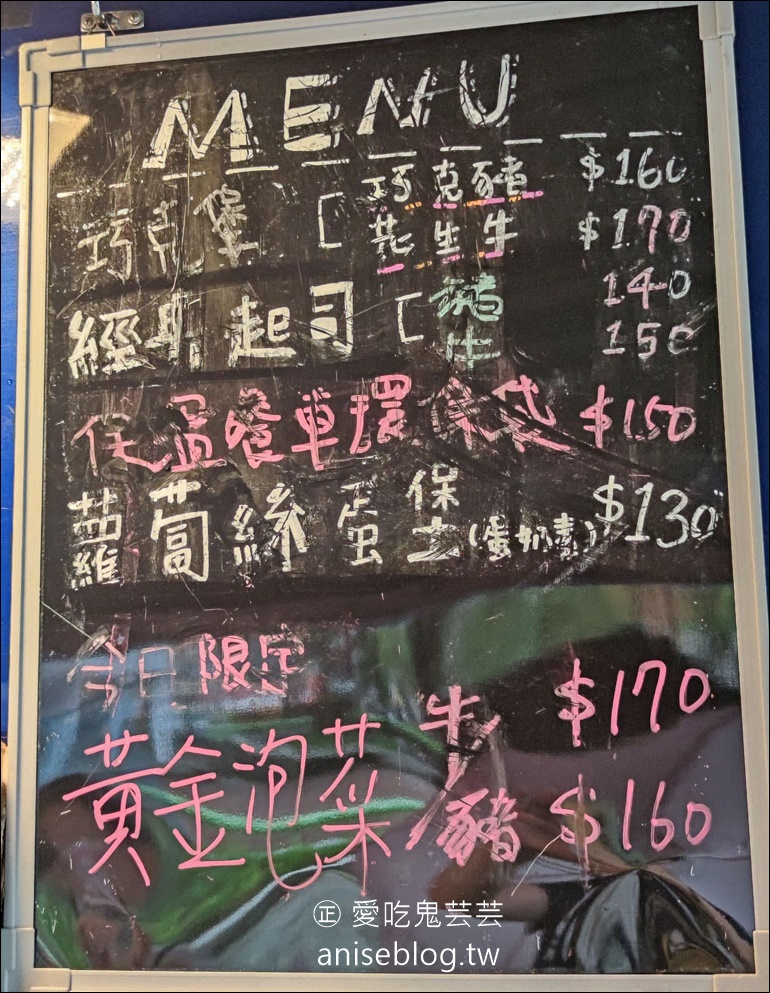 MENU
巧克堡 [ 巧克豬 $160
花生牛 $170
經典起司 [ 豬 140
牛 150
保溫餐車環保袋 $150
蘿蔔絲蛋保 $130
(蛋奶素)
今日限定
黃金泡菜 牛 $170
豬 $160
㊣ 愛吃鬼芸芸
aniseblog.tw